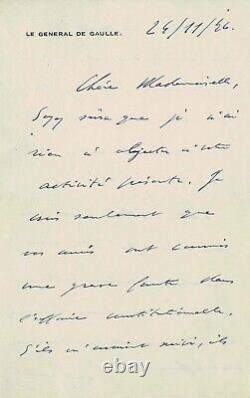 LE GENERAL DE GAULLE.
24/11/46.
Chère Mademoiselle,
Soyez sûre que je n'ai
rien à objecter à votre
activité présente. Je
crois seulement que
vos amis ont commis
une grave faute dans
l'affaire constitutionnelle.
S'ils m'avaient suivi, ils
ebay